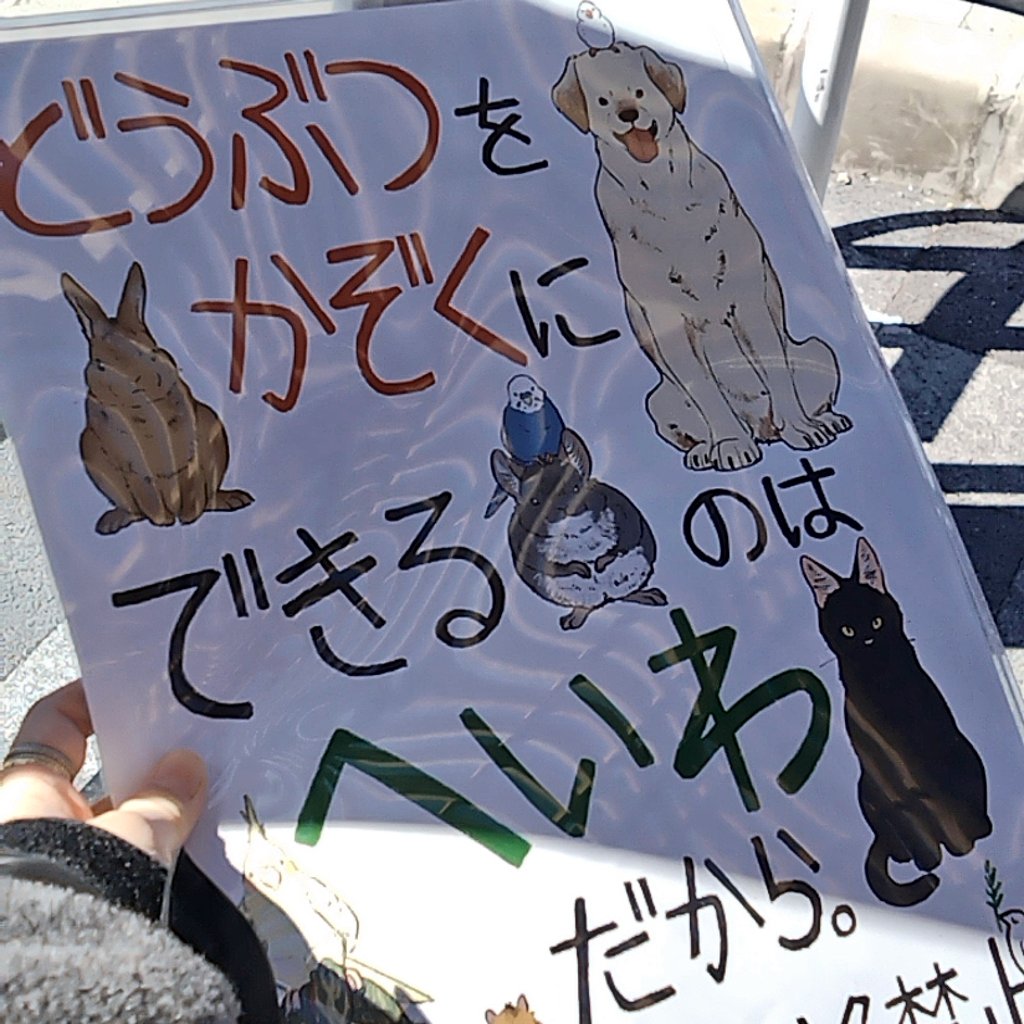 どうぶつを
かぞくに
できるのは
へいわ
だから。
禁止